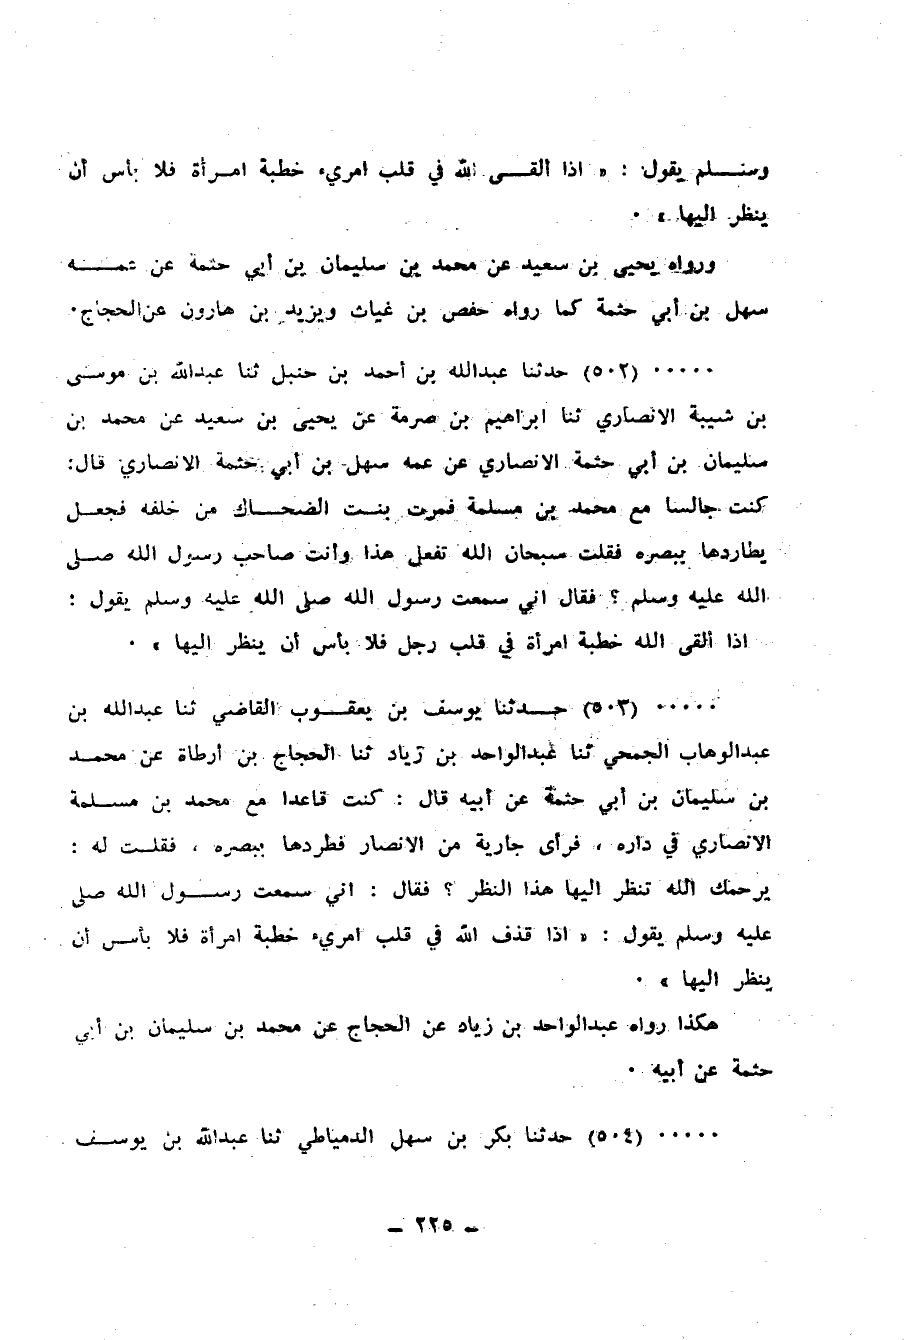 وسلم يقول : « اذا ألقى الله في قلب امريء خطبة امرأة فلا بأس أن
ينظر اليها » ٠
ورواه يحيى بن سعيد عن محمد بن سليمان بن أبي حثمة عن عمه
سهل بن أبي حثمة كما رواه حفص بن غياث ويزيد بن هارون عن الحجاج٠
٠٠٠٠٠ (٥٠٢) حدثنا عبدالله بن أحمد بن حنبل ثنا عبدالله بن موسى
بن شيبة الانصاري ثنا ابراهيم بن صرمة عن يحيى بن سعيد عن محمد بن
سليمان بن أبي حثمة الانصاري عن عمه سهل بن أبي حثمة الانصاري قال:
كنت جالسا مع محمد بن مسلمة فمرت بنت الضحاك من خلفه فجعل
يطاردها ببصره فقلت سبحان الله تفعل هذا وأنت صاحب رسول الله صلى
الله عليه وسلم ؟ فقال اني سمعت رسول الله صلى الله عليه وسلم يقول :
اذا ألقى الله خطبة امرأة في قلب رجل فلا بأس أن ينظر اليها » ٠
٠٠٠٠٠ (٥٠٣) حدثنا يوسف بن يعقوب القاضي ثنا عبدالله بن
عبدالوهاب الجمحي ثنا عبدالواحد بن زياد ثنا الحجاج بن أرطاة عن محمد
بن سليمان بن أبي حثمة عن أبيه قال : كنت قاعدا مع محمد بن مسلمة
الانصاري في داره ، فرأى جارية من الانصار فطردها ببصره ، فقلت له :
يرحمك الله تنظر اليها هذا النظر ؟ فقال : اني سمعت رسول الله صلى
عليه وسلم يقول : « اذا قذف الله في قلب امريء خطبة امرأة فلا بأس أن
ينظر اليها » ٠
هكذا رواه عبدالواحد بن زياد عن الحجاج عن محمد بن سليمان بن أبي
حثمة عن أبيه ٠
٠٠٠٠٠ (٥٠٤) حدثنا بكر بن سهل الدمياطي ثنا عبدالله بن يوسف
– ٢٢٥ –